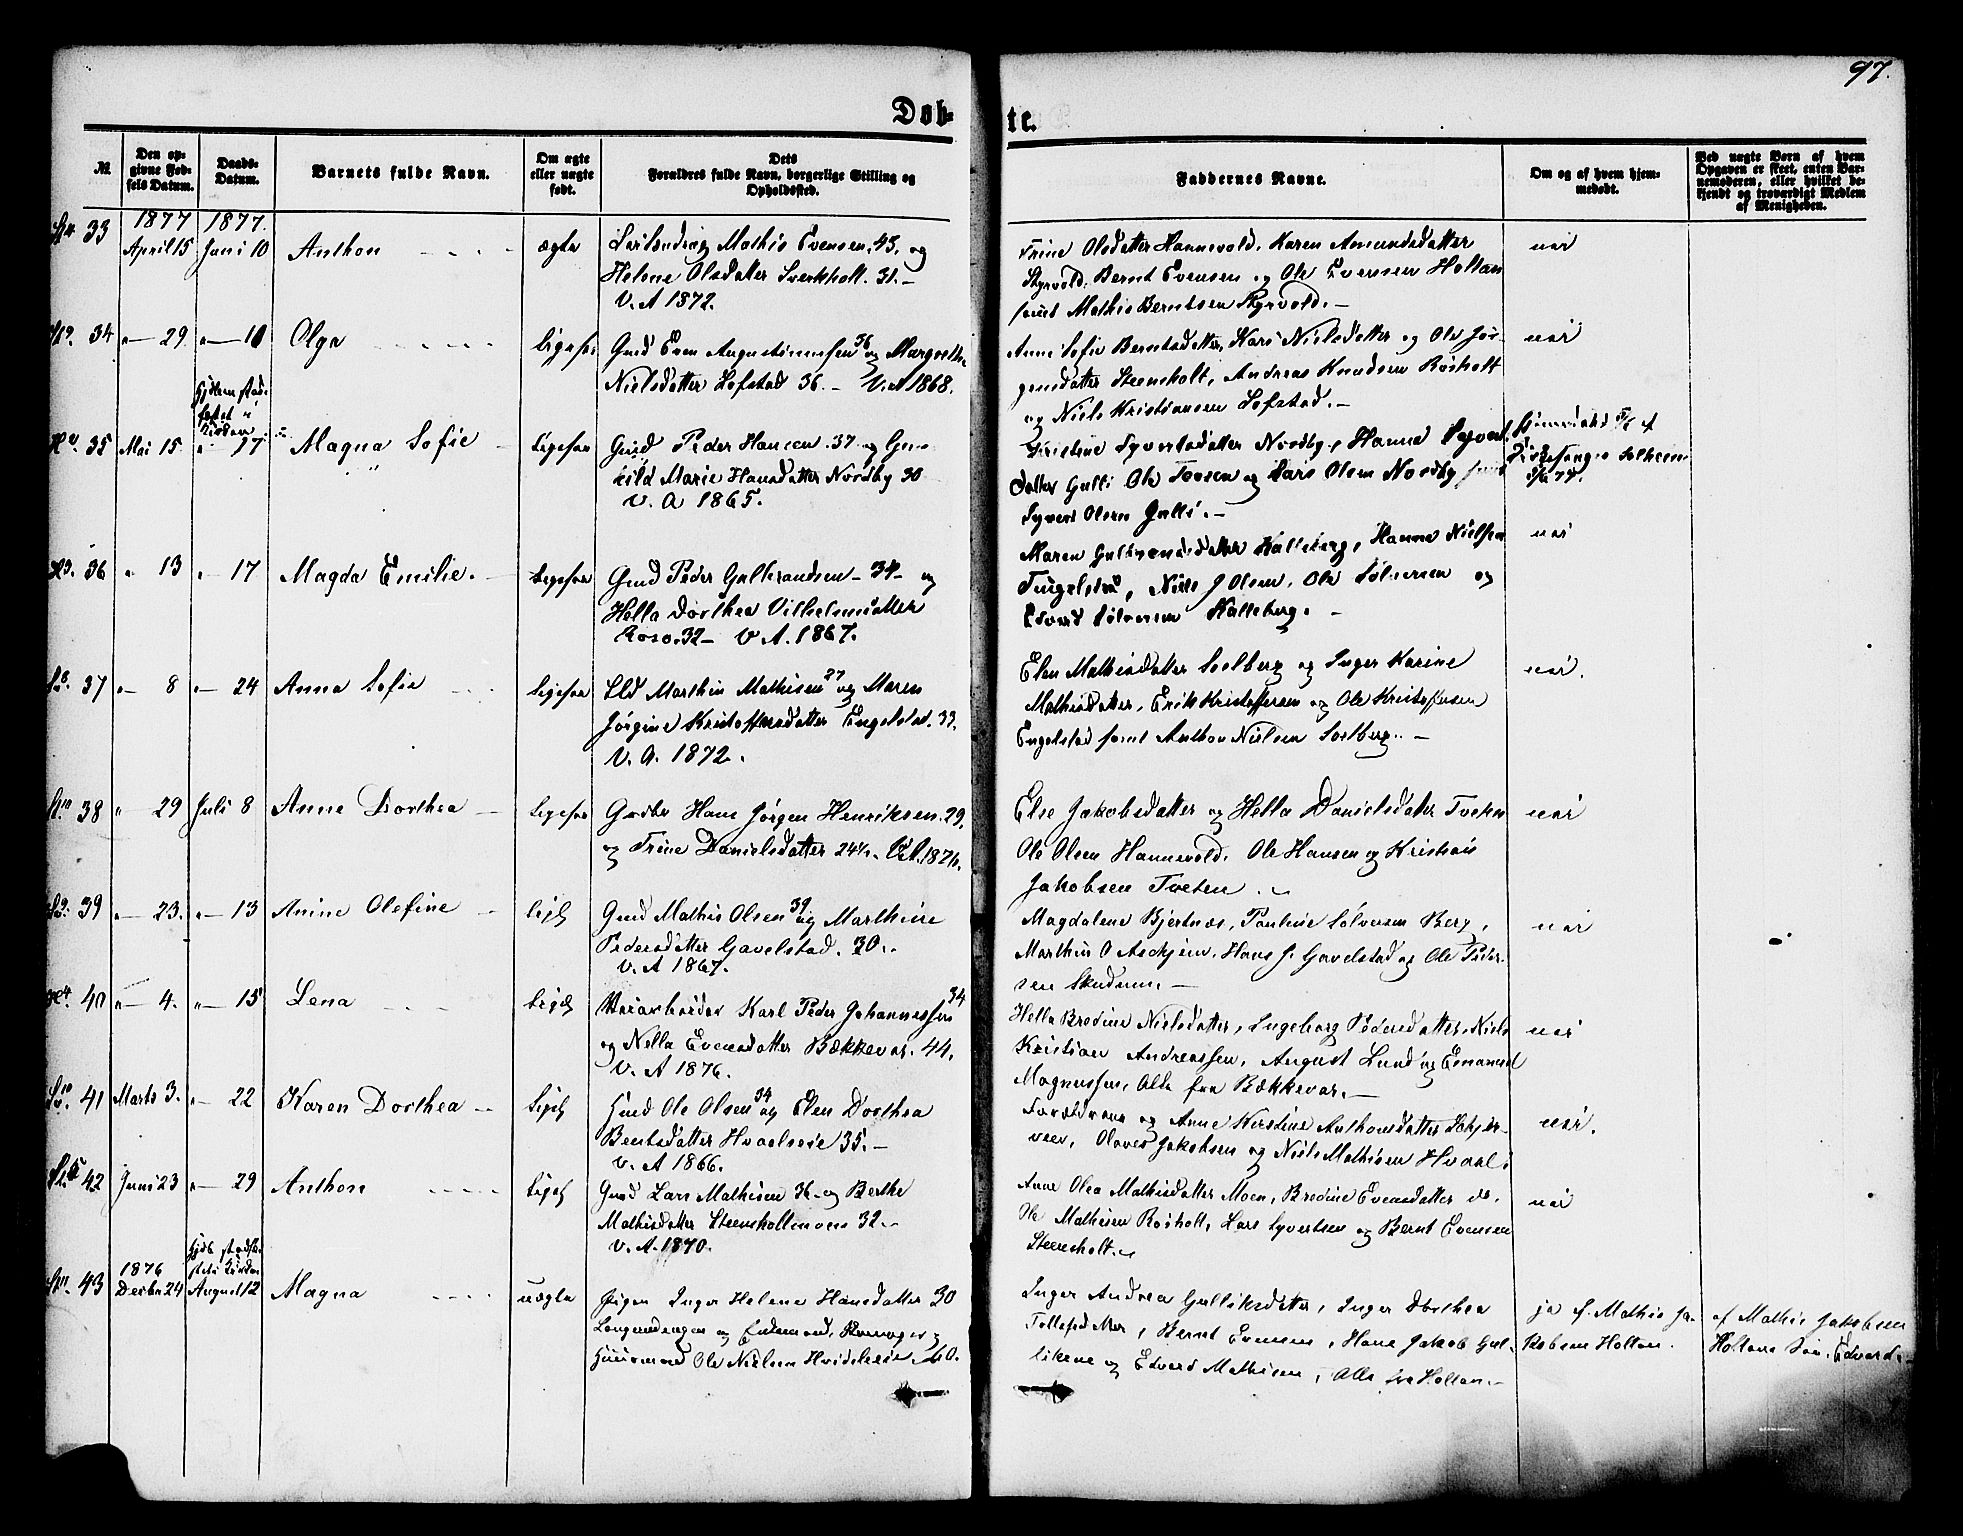 97.
Døb-
te.
№
Den op-
givne Fød-
sels Datum.
Daabs-
Datum.
Barnets fulde Navn.
Om ægte
eller uægte
født.
Dets
Forældres fulde Navn, borgerlige Stilling og
Opholdssted.
Faddernes Navne.
Om og af hvem hjem-
medøbt.
Ved uægte Børn af hvem
Opgaven er skeet, enten Bar-
nemoderen, eller hvilket be-
kjendt og troværdigt Medlem
af Menigheden.
1877 1877.
33 April 15 Juni 10 Anthon ægte Mathis Evensen 43. og
Helene Olsdatter Sverkholt. 31.-
V. A 1872.
Trine Olsdatter Hannevold. Karen Amundsdatter
Styrvold. Bernt Evensen og Ole Evensen Holtan
samt Mathis Berntsen Styrvold.-
nei
34 "- 29. "- 10 Olga ligesaa Gmd Even Augustinussen 36 og Margrethe
Nielsdatter Lofstad 36.- V. A 1868.
Anne Sofie Berntsdatter, Kari Nielsdatter og Ole Jør-
gensdatter Steensholt, Andreas Knudsen Rosholt
og Niels Kristiansen Lofstad.-
nei
Hjemm stad-
festet i
Kirken
35 Mai 15. " 17 Magna Sofie ligesaa Gmd Peder Hansen. 37 og Gun-
hild Marie Hansdatter Nordby 30
V. A 1865.
Kristine Syvertsdatter Nordby, Hanna Syverts
datter Gulli Ole Torsen og Lars Olsen Nordby samt
Syvert Olsen Gulli.-
Hjemmedøbt af
Kirkesanger Solheim
77.
36 " 13 "- 17 Magda Emilie.- ligesaa Gmd Peder Gulbrandsen- 34- og
Hella Dorthea Vilhelmsdatter
32- V. A. 1867.
Maren Gulbrandsdatter Kalleberg, Hanna Nielsen
Niels J Olsen, Ole Sølversen og
Edvard Sølversen Kalleberg.-
nei
37 "- 8 "- 24 Anna Sofie ligesaa Marthin Mathisen 27 og Maren
Jørgine Kristoffersdatter Engelstad. 33.
V. A. 1872.
Elen Mathisdatter Solberg og Inger Karine
Mathisdatter, Erik Kristoffersen og Ole Kristoffersen
Engelstad samt Anthon Nielsen Solberg.-
nei.
38 " 29 Juli 8 Anne Dorthea ligesaa Hans Jørgen Henriksen. 29.
og Trine Danielsdatter 24½.- V. A. 1876.
Else Jakobsdatter og Hella Danielsdatter Tveten
Ole Olsen Hannevold. Ole Hansen og Kristian
Jakobsen Tveten.-
nei
39 "- 23. "- 13 Anine Olefine Gmd Mathis Olsen 39 og Marthine
Pedersdatter Gavelstad. 30.-
V. A 1867.
Magdalene Bjertnæs, Pauline Sølversen Berg,
Marthin O Askjem, Hans J. Gavelstad og Ole Peder-
sen Skudum.-
nei
40 "- 4. "- 15 Lena Veiarbeider Karl Peder Johannessen 34
og Nella Evensdatter Bækkevar. 44.
V. A 1876.
Hella Bredine Nielsdatter, Ingeborg Pedersdatter, Niels
Kristian Andreassen, August Lund og Emanuel
Magnussen, Alle fra Bækkevar.-
nei
41 Marts 3. "- 22 Karen Dorthea Gmd Ole Olsen 34 og Elen Dorthea
Berntsdatter Hvaalseie 35.-
V. A 1866.
Forældrene og Anne Kirstine Anthonsdatter
Olaves Jakobsen og Niels Mathisen Hvaal.
nei.
42 Juni 23 "- 29 Anthon Gmd Lars Mathisen 36- og Berthe
Mathisdatter Steensholtmoen 32.-
V. A. 1870.
Anne Olea Mathisdatter Moen, Bredine Evensdatter do.
Ole Mathisen Rosholt, Lars Syvertsen og Bernt Evensen
Steensholt.-
nei
1876
43 Decbr 24 August 12 Magna uægte Pigen Inger Helene Hansdatter 30
Langerudengen og Enkemand,
Ole Nielsen Hvidsteie 40.
Inger Andrea Gulliksdatter, Inger Dorthea
Tollefsdatter, Bernt Evensen, Hans Jakob Gul-
liksen og Edvard Mathisen, Alle fra Holtan.-
ja af Mathis Ja-
kobsen Holtan.
af Mathis Jakobsen
Holtans Søn, Edvard.-